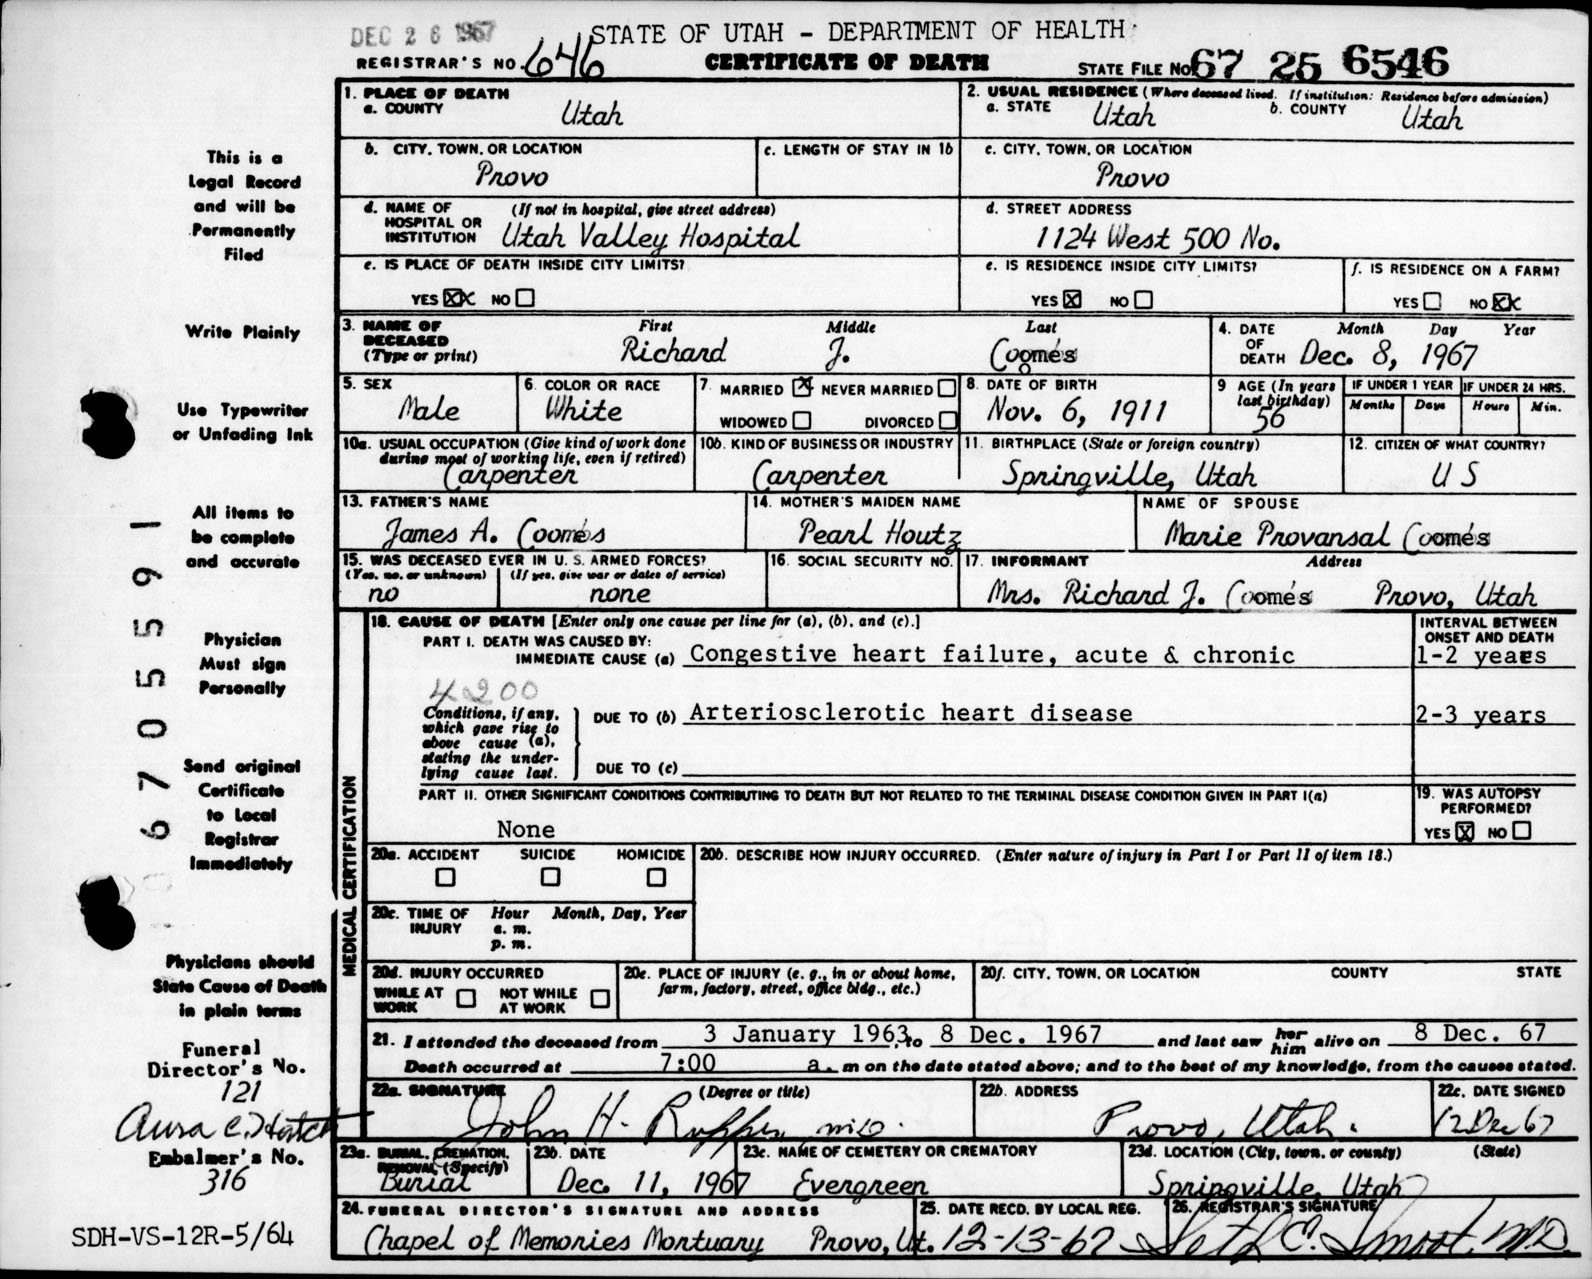 DEC 26 1967
STATE OF UTAH - DEPARTMENT OF HEALTH
REGISTRAR'S NO. 646
CERTIFICATE OF DEATH
STATE FILE NO. 67 25 6546
This is a
Legal Record
and will be
Permanently
Filed
Write Plainly
Use Typewriter
or Unfading Ink
All items to
be complete
and accurate
Physician
Must sign
Personally
Send original
Certificate
to Local
Registrar
Immediately
Physicians should
State Cause of Death
in plain terms
Funeral
Director's No.
121
Embalmer's No.
316
SDH-VS-12R-5/64
6705591
1. PLACE OF DEATH
a. COUNTY Utah
2. USUAL RESIDENCE (Where deceased lived. If institution: Residence before admission)
a. STATE Utah b. COUNTY Utah
b. CITY, TOWN, OR LOCATION
Provo
c. LENGTH OF STAY IN 1b
c. CITY, TOWN, OR LOCATION
Provo
d. NAME OF (If not in hospital, give street address)
HOSPITAL OR
INSTITUTION Utah Valley Hospital
d. STREET ADDRESS
1124 West 500 No.
e. IS PLACE OF DEATH INSIDE CITY LIMITS?
YES XX NO
e. IS RESIDENCE INSIDE CITY LIMITS?
YES X NO
f. IS RESIDENCE ON A FARM?
YES NO XX
3. NAME OF DECEASED (Type or print)
First Middle Last
Richard J. Coomes
4. DATE OF DEATH Month Day Year
Dec. 8, 1967
5. SEX
Male
6. COLOR OR RACE
White
7. MARRIED X NEVER MARRIED
WIDOWED DIVORCED
8. DATE OF BIRTH
Nov. 6, 1911
9 AGE (In years last birthday)
56
IF UNDER 1 YEAR IF UNDER 24 HRS.
Months Days Hours Min.
10a. USUAL OCCUPATION (Give kind of work done
during most of working life, even if retired)
Carpenter
10b. KIND OF BUSINESS OR INDUSTRY
Carpenter
11. BIRTHPLACE (State or foreign country)
Springville, Utah
12. CITIZEN OF WHAT COUNTRY?
U S
13. FATHER'S NAME
James A. Coomes
14. MOTHER'S MAIDEN NAME
Pearl Houtz
NAME OF SPOUSE
Marie Provansal Coomes
15. WAS DECEASED EVER IN U. S. ARMED FORCES?
(Yes, no, or unknown) (If yes, give war or dates of service)
no none
16. SOCIAL SECURITY NO.
17. INFORMANT Address
Mrs. Richard J. Coomes Provo, Utah
MEDICAL CERTIFICATION
18. CAUSE OF DEATH [Enter only one cause per line for (a), (b), and (c).]
PART I. DEATH WAS CAUSED BY:
IMMEDIATE CAUSE (a) Congestive heart failure, acute & chronic
INTERVAL BETWEEN
ONSET AND DEATH
1-2 years
4200
Conditions, if any,
which gave rise to
above cause (a),
stating the under-
lying cause last.
DUE TO (b) Arteriosclerotic heart disease
2-3 years
DUE TO (c)
PART II. OTHER SIGNIFICANT CONDITIONS CONTRIBUTING TO DEATH BUT NOT RELATED TO THE TERMINAL DISEASE CONDITION GIVEN IN PART I(a)
None
19. WAS AUTOPSY
PERFORMED?
YES X NO
20a. ACCIDENT SUICIDE HOMICIDE
20b. DESCRIBE HOW INJURY OCCURRED. (Enter nature of injury in Part I or Part II of item 18.)
20c. TIME OF INJURY Hour Month, Day, Year
a. m.
p. m.
20d. INJURY OCCURRED
WHILE AT WORK NOT WHILE AT WORK
20e. PLACE OF INJURY (e. g., in or about home,
farm, factory, street, office bldg., etc.)
20f. CITY, TOWN, OR LOCATION COUNTY STATE
21. I attended the deceased from 3 January 1963, to 8 Dec. 1967 and last saw her him alive on 8 Dec. 67
Death occurred at 7:00 a. m on the date stated above; and to the best of my knowledge, from the causes stated.
22a. SIGNATURE (Degree or title)
John H. M.D.
22b. ADDRESS
Provo, Utah.
22c. DATE SIGNED
12 Dec 67
23a. BURIAL, CREMATION,
REMOVAL (Specify)
Burial
23b. DATE
Dec. 11, 1967
23c. NAME OF CEMETERY OR CREMATORY
Evergreen
23d. LOCATION (City, town, or county) (State)
Springville, Utah
24. FUNERAL DIRECTOR'S SIGNATURE AND ADDRESS
Chapel of Memories Mortuary Provo, Ut.
25. DATE RECD. BY LOCAL REG.
12-13-67
26. REGISTRAR'S SIGNATURE
Seth E. Smoot, M.D.